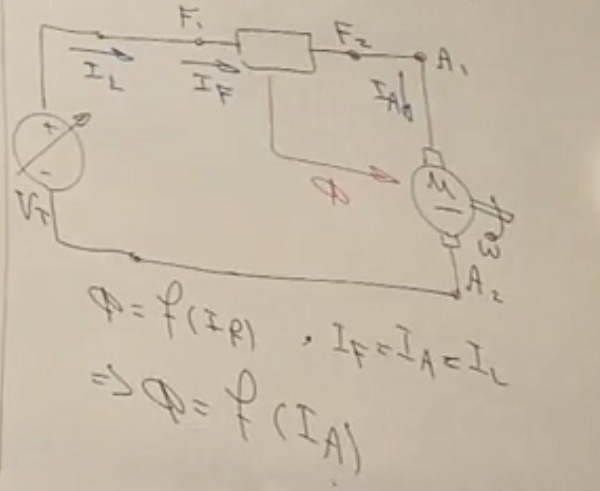 F₁
F₂
A₁
I_L
I_F
I_A
+
-
V_T
Φ
M
ω
A₂
Φ = f(I_F) . I_F = I_A = I_L
=> Φ = f(I_A)